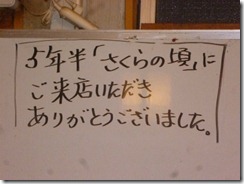 5年半「さくらの頃」に
ご来店いただき
ありがとうございました。